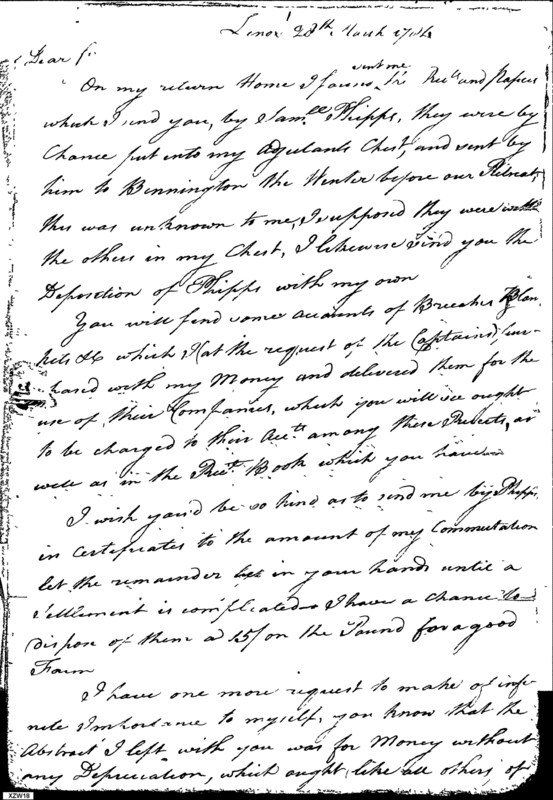 Lenox 28th March 1784
Dear Sr
sent me
On my return Home I found the Rects and Papers
which I send you, by Samll Phipps, they were by
Chance put into my Adjutants Chest, and sent by
him to Bennington the Winter before our Retreat,
this was unknown to me, I supposed they were with
the others in my Chest, I likewise send you the
Deposition of Phipps with my own
You will find some accounts of Breeches Blan-
kets &c which I (at the request of the Captains) pur-
chased with my Money and delivered them for the
use of their Companies, which you will see ought
to be charged to their Accts among these Receipts, as
well as in the Rect Book which you have
I wish you'd be so kind as to send me by Phipps
in Certificates to the amount of my Commutation
let the remainder in your hands until a
Settlement is complicated I have a chance to
dispose of them a 15/ on the Pound for a good
Farm
I have one more request to make of infi-
nite Importance to myself, you know that the
Abstract I left with you was for Money without
any Depreciation, which ought, like all others, of
XZW18